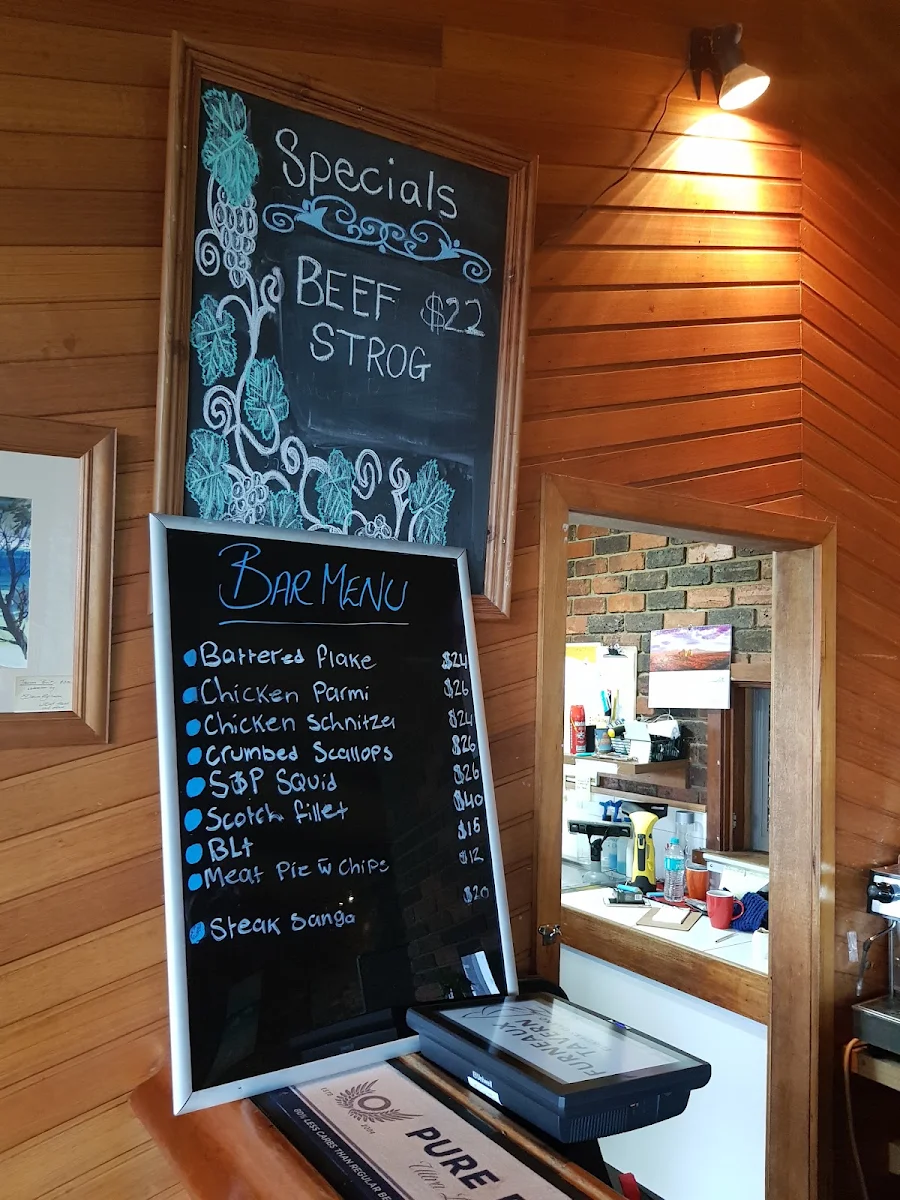 Specials
BEEF $22
STROG
BAR MENU
Battered Flake $24
Chicken Parmi $26
Chicken Schnitzel $24
Crumbed Scallops $26
S&P Squid $26
Scotch fillet $40
BLt $15
Meat Pie w Chips $12
Steak Sanga $20
FURNEAUX
TAVERN
ESTD 2004
PURE
Ultra
80% LESS CARBS THAN REGULAR BE